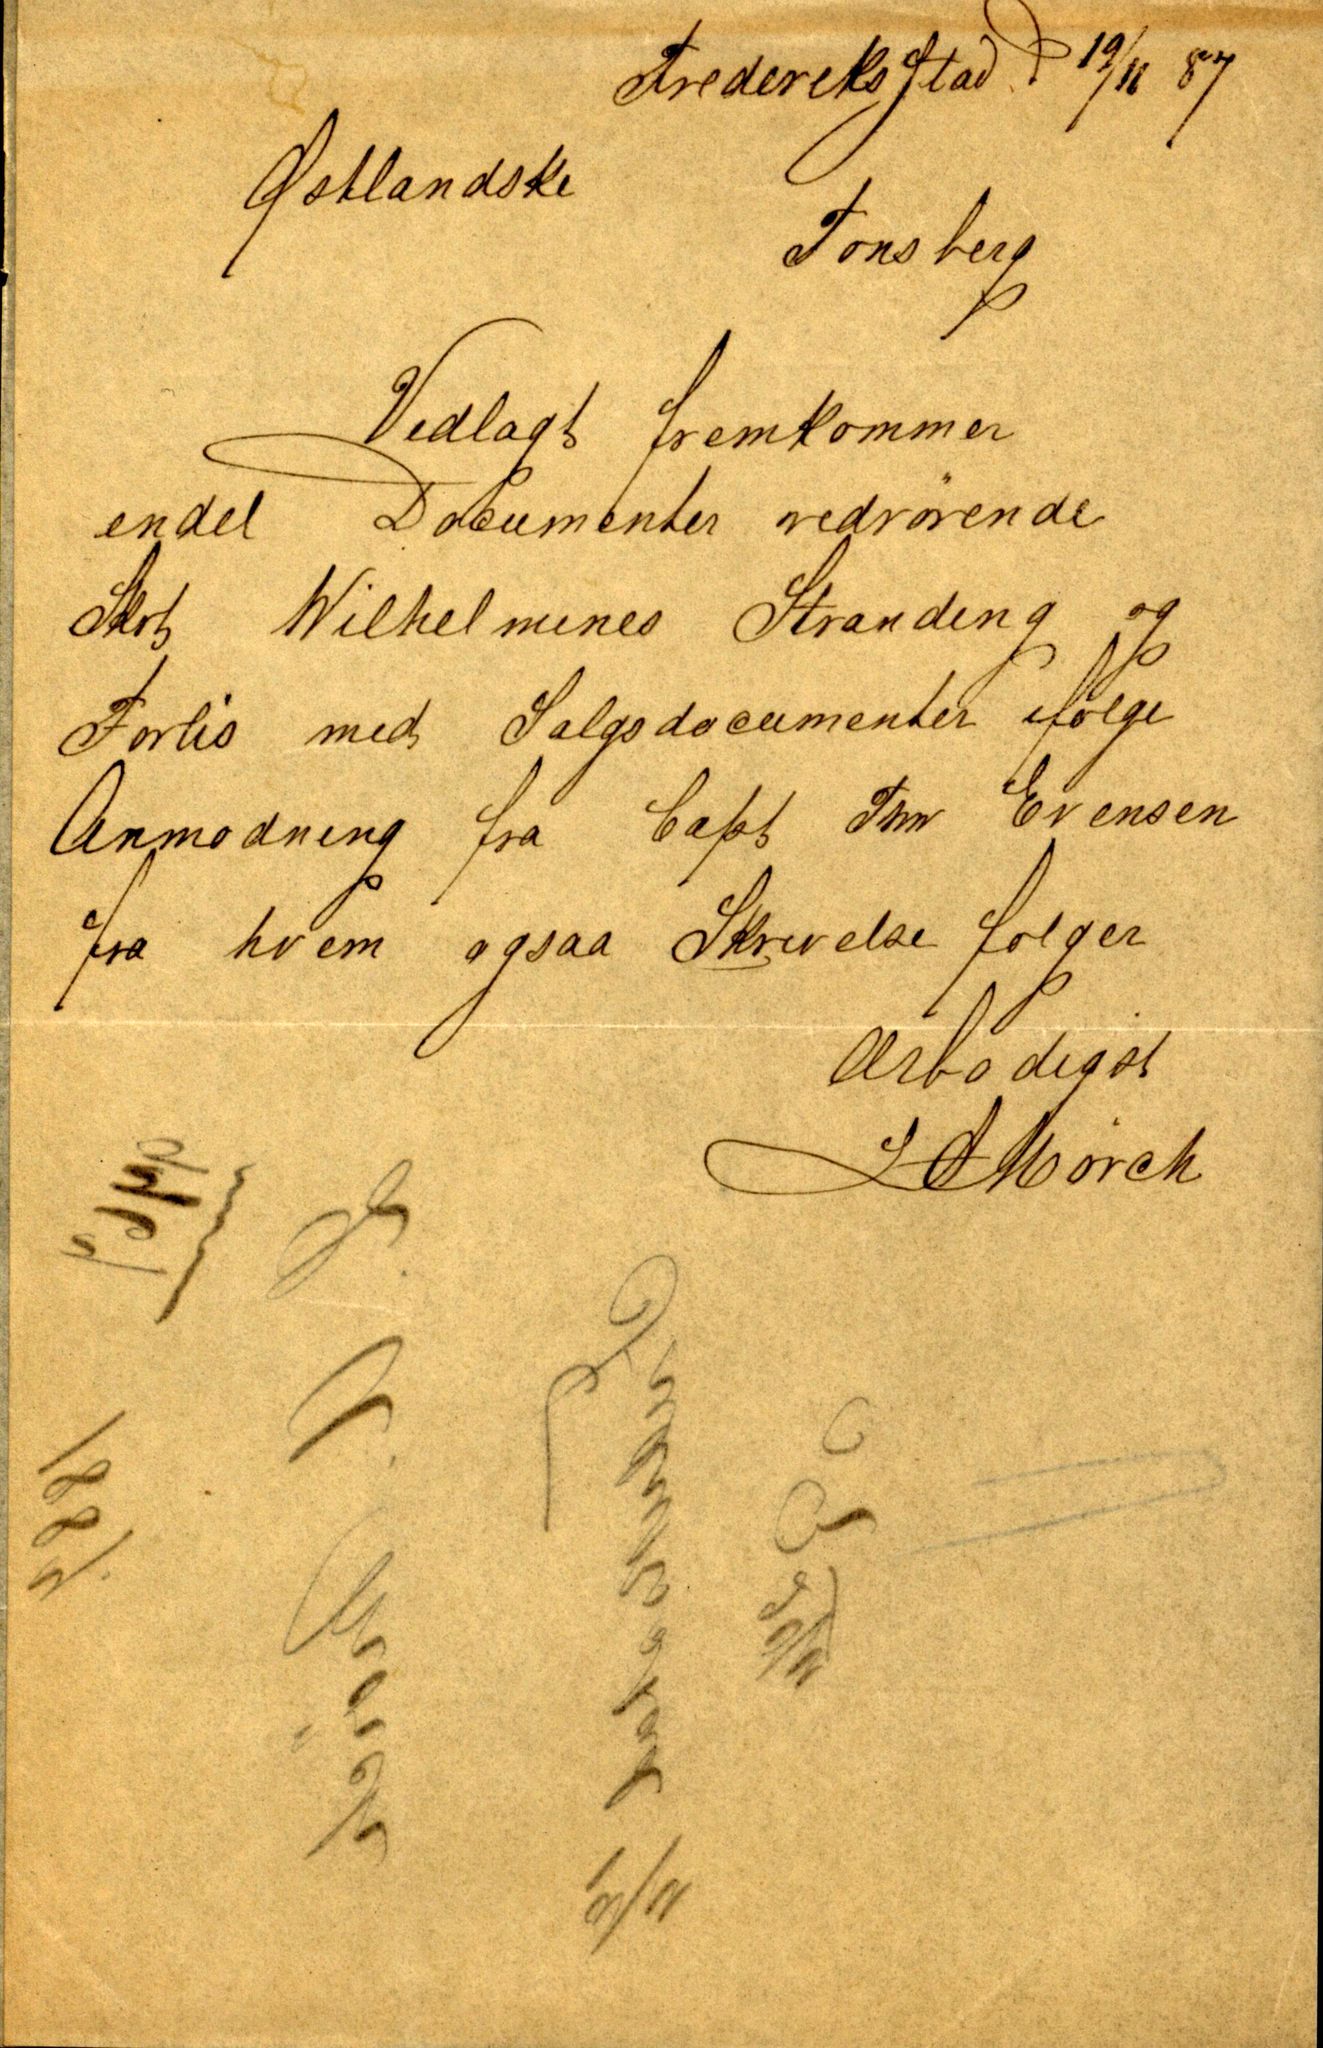 Frederiksstad d 19/11 87
Østlandske
Tonsberg
Vedlagt fremkommer
endel Documenter vedrörende
Skrt Wilhelmines Stranding og
Forlis med Salgsdocumenter ifölge
Anmodning fra Capt Thv Evensen
fra hvem ogsaa Skrivelse folger
Ærbodigst
L A Mörch
1887.